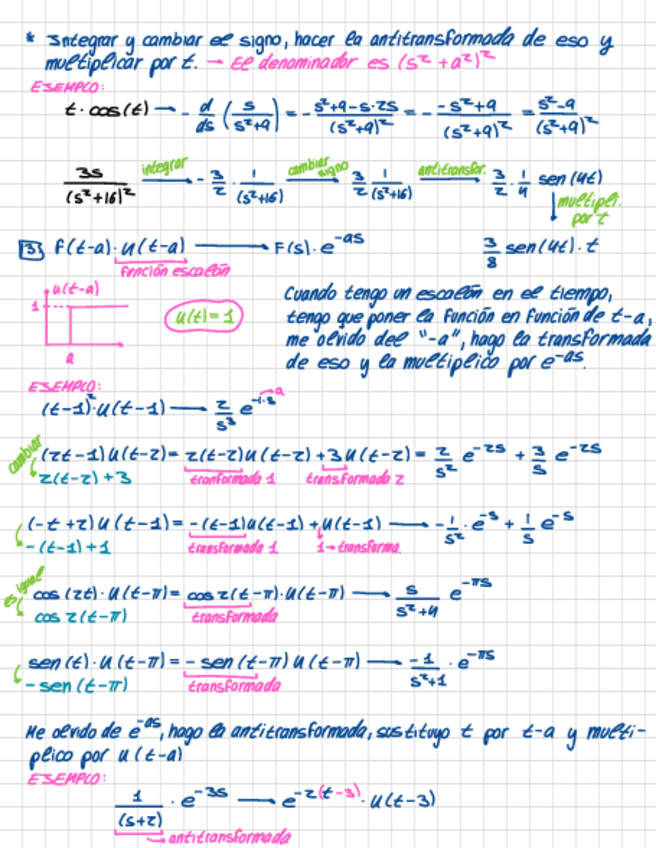 * Integrar y cambiar el signo, hacer la antitransformada de eso y
multiplicar por t. → El denominador es (s² + a²)²
EJEMPLO:
t · cos(t) → - d/ds (s/(s²+9)) = - (s²+9-s·2s)/(s²+9)² = - (-s²+9)/(s²+9)² = (s²-9)/(s²+9)²
3s/(s²+16)² integrar → - 3/2 · 1/(s²+16) cambiar signo → 3/2 1/(s²+16) antitransfor. → 3/2 · 1/4 sen(4t)
↓ multipli. por t
3/8 sen(4t) · t
3) f(t-a) · u(t-a) → F(s) · e^-as
función escalón
u(t-a)
1
a
u(t) = 1
Cuando tengo un escalón en el tiempo,
tengo que poner la función en función de t-a,
me olvido del "-a", hago la transformada
de eso y la multiplico por e^-as.
EJEMPLO:
(t-1)² · u(t-1) → 2/s³ e^-1·s → a
cambiar
(2t-1)u(t-2) = 2(t-2)u(t-2) + 3u(t-2) = 2/s² e^-2s + 3/s e^-2s
2(t-2)+3 tranformada 1 transformada 2
(-t+2)u(t-1) = -(t-1)u(t-1) + u(t-1) → - 1/s² · e^-s + 1/s e^-s
-(t-1)+1 transformada 1 1→transforma.
es igual
cos(2t) · u(t-π) = cos 2(t-π) · u(t-π) → s/(s²+4) e^-πs
cos 2(t-π) transformada
sen(t) · u(t-π) = - sen(t-π) u(t-π) → -1/(s²+1) · e^-πs
- sen(t-π) transformada
Me olvido de e^-as, hago la antitransformada, sustituyo t por t-a y multi-
plico por u(t-a)
EJEMPLO:
1/(s+2) · e^-3s → e^-2(t-3) · u(t-3)
→ antitransformada